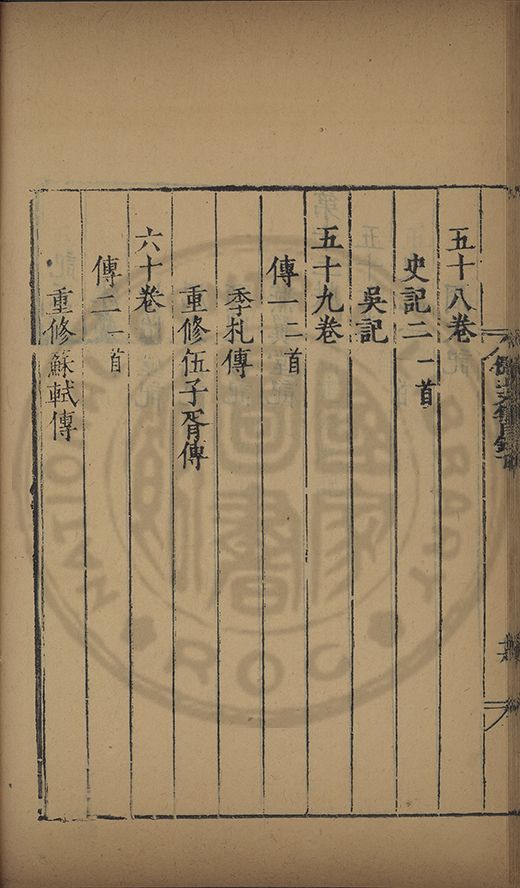 五十八卷
史記二 一首
吳記
五十九卷
傳一 二首
季札傳
重修伍子胥傳
六十卷
傳二 一首
重修蘇軾傳